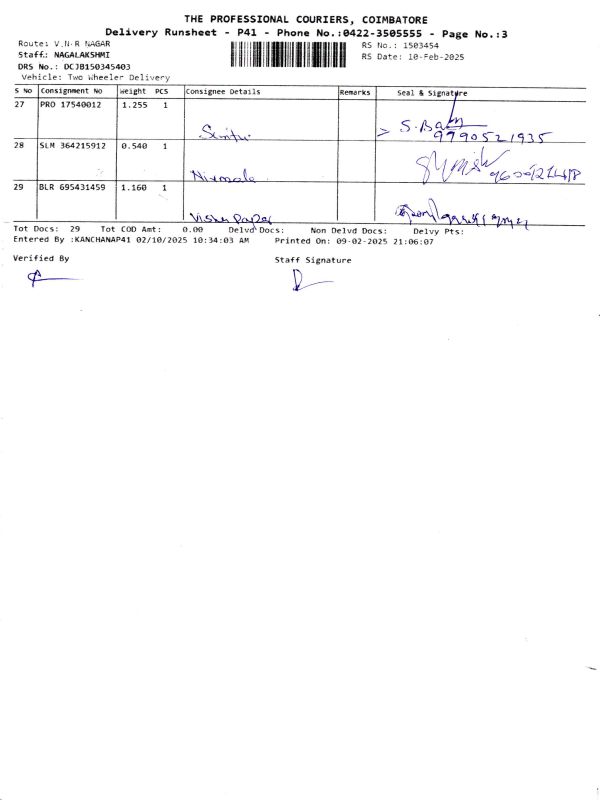 THE PROFESSIONAL COURIERS, COIMBATORE
Delivery Runsheet - P41 - Phone No.:0422-3505555 - Page No.:3
Route: V.N.R NAGAR
RS No.: 1503454
Staff.: NAGALAKSHMI
RS Date: 10-Feb-2025
DRS No.: DCJB150345403
Vehicle: Two Wheeler Delivery
S No Consignment No Weight PCS Consignee Details Remarks Seal & Signature
27 PRO 17540012 1.255 1
S.Babu
9990521935
28 SLM 364215912 0.540 1
Nirmala
29 BLR 695431459 1.160 1
Tot Docs: 29 Tot COD Amt: 0.00 Delvd Docs: Non Delvd Docs: Delvy Pts:
Entered By :KANCHANAP41 02/10/2025 10:34:03 AM Printed On: 09-02-2025 21:06:07
Verified By Staff Signature